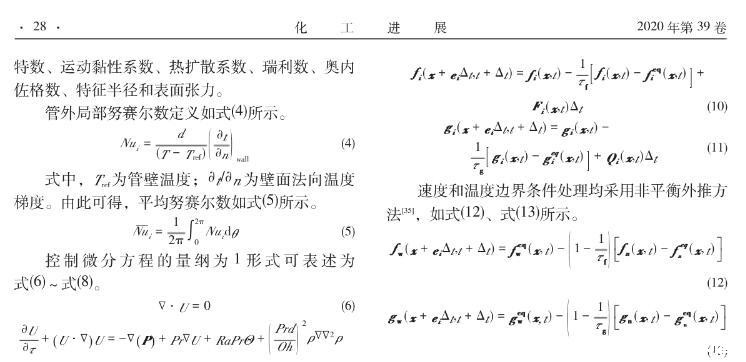 · 28 ·
化 工 进 展
2020年第39卷
特数、运动黏性系数、热扩散系数、瑞利数、奥内
佐格数、特征半径和表面张力。
管外局部努赛尔数定义如式(4)所示。
Nu_i = d/(T − T_ref) (∂t/∂n)_wall (4)
式中，T_ref为管壁温度；∂t/∂n为壁面法向温度
梯度。由此可得，平均努赛尔数如式(5)所示。
N̄u_i = 1/2π ∫_0^2π Nu_i dθ (5)
控制微分方程的量纲为1形式可表述为
式(6)～式(8)。
∇ · U = 0 (6)
∂U/∂τ + (U · ∇)U = −∇(P) + Pr∇U + RaPrΘ + (Prd/Oh)^2 ρ∇∇^2ρ
f_i(x + e_iΔt,t + Δt) = f_i(x,t) − 1/τ_f [f_i(x,t) − f_i^eq(x,t)] +
F_i(x,t)Δt (10)
g_i(x + e_iΔt,t + Δt) = g_i(x,t) −
1/τ_g [g_i(x,t) − g_i^eq(x,t)] + Q_i(x,t)Δt (11)
速度和温度边界条件处理均采用非平衡外推方
法[35]，如式(12)、式(13)所示。
f_w(x + e_iΔt,t + Δt) = f_w^eq(x,t) − (1 − 1/τ_f)[f_n(x,t) − f_n^eq(x,t)]
(12)
g_w(x + e_iΔt,t + Δt) = g_w^eq(x,t) − (1 − 1/τ_g)[g_n(x,t) − g_n^eq(x,t)]